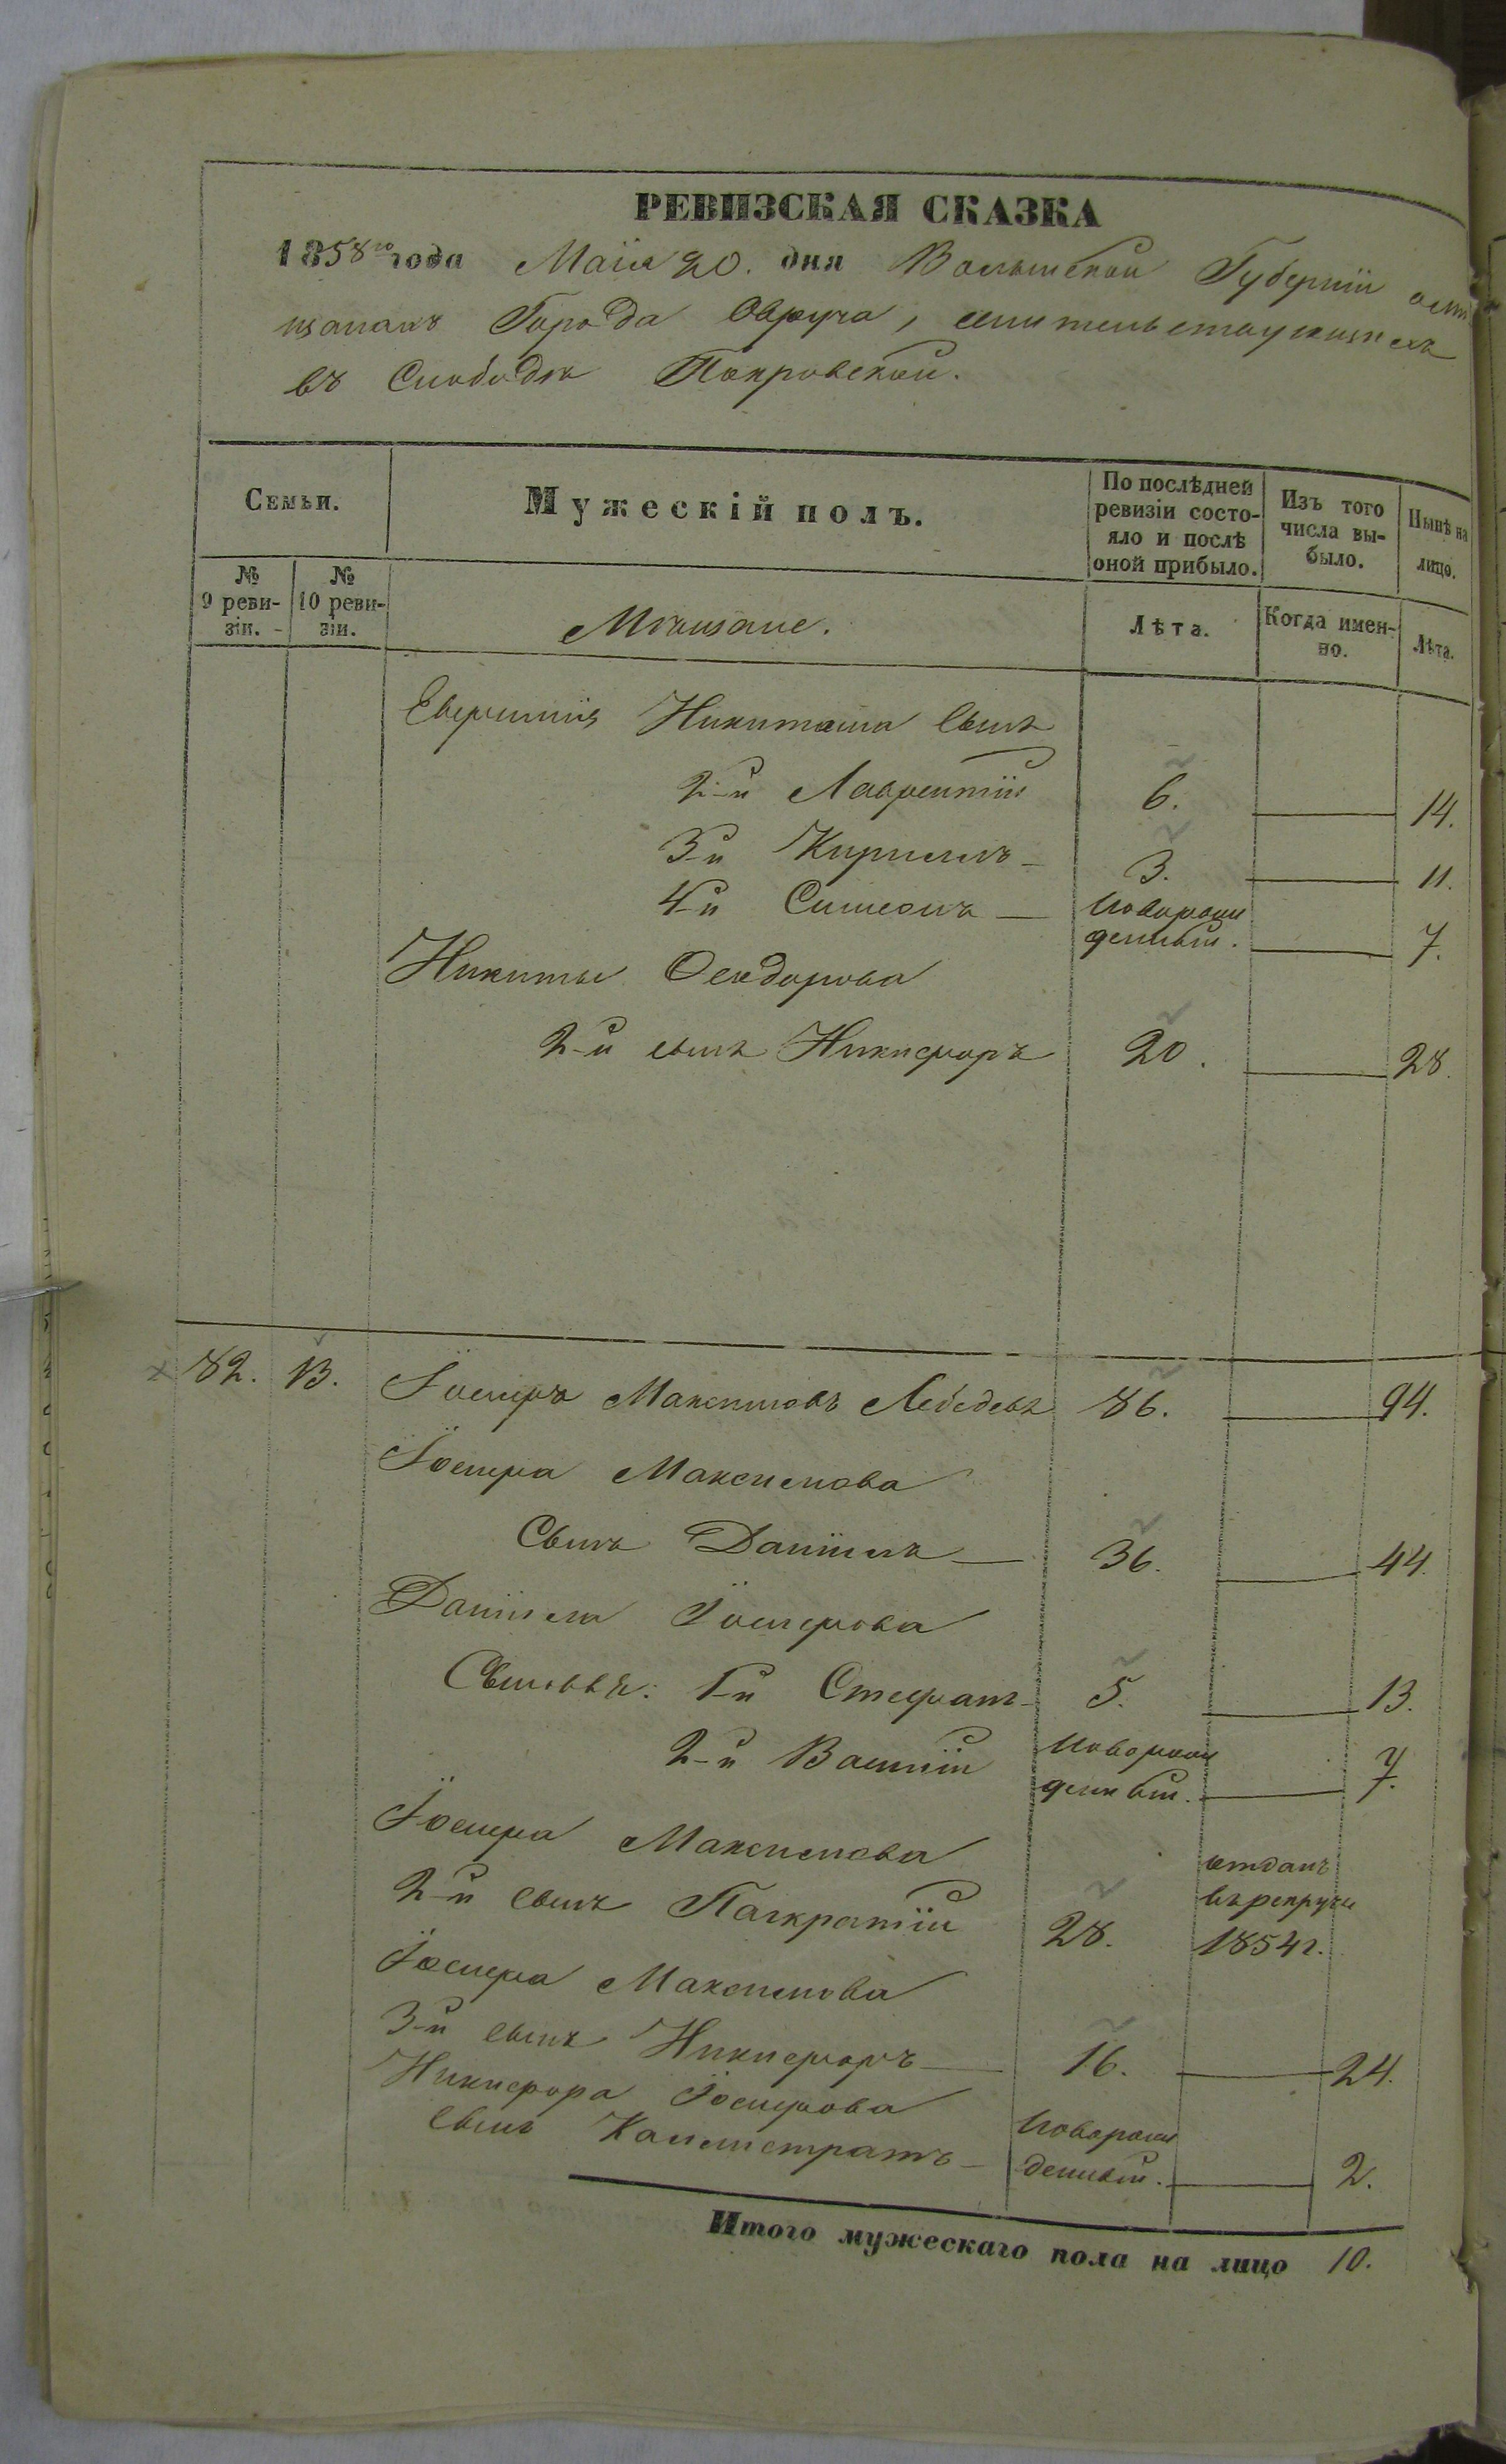 РЕВИЗСКАЯ СКАЗКА
1858го года Маія 20. дня Волынской Губерніи о мѣ
щанахъ Города Овруча, жительствующихъ
въ Слободѣ Покровской.
Семьи.
Мужескій полъ.
По послѣдней ревизіи состояло и послѣ оной прибыло.
Изъ того числа выбыло.
Нынѣ на лицо.
№ 9 ревизіи.
№ 10 ревизіи.
Мѣщане.
Лѣта.
Когда именно.
Лѣта.
Никитина Сынъ
2-й Лаврентій 6. 14.
3-й Кириллъ 3. 11.
4-й Симеонъ новорожденный. 7.
Никиты Феодорова
2-й сынъ Никифоръ 20. 28.
82. 13. Іосифъ Максимовъ Лебедевъ 86. 94.
Іосифа Максимова
Сынъ Даніилъ 36. 44.
Даніила Іосифова
Сыновья: 1-й Стефанъ 5. 13.
2-й Василій новорожденный. 7.
Іосифа Максимова
2-й сынъ Панкратій 28. отданъ въ рекруты 1854 г.
Іосифа Максимова
3-й сынъ Никифоръ 16. 24.
Никифора Іосифова
сынъ Каллистратъ новорожденный. 2.
Итого мужескаго пола на лицо 10.